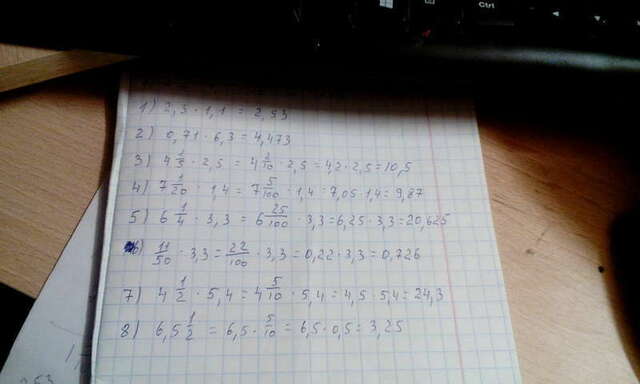 1) 2,3 · 1,1 = 2,53
2) 0,71 · 6,3 = 4,473
3) 4 1/5 · 2,5 = 4 2/10 · 2,5 = 4,2 · 2,5 = 10,5
4) 7 1/20 · 1,4 = 7 5/100 · 1,4 = 7,05 · 1,4 = 9,87
5) 6 1/4 · 3,3 = 6 25/100 · 3,3 = 6,25 · 3,3 = 20,625
6) 11/50 · 3,3 = 22/100 · 3,3 = 0,22 · 3,3 = 0,726
7) 4 1/2 · 5,4 = 4 5/10 · 5,4 = 4,5 · 5,4 = 24,3
8) 6,5 1/2 = 6,5 · 5/10 = 6,5 · 0,5 = 3,25
Ctrl